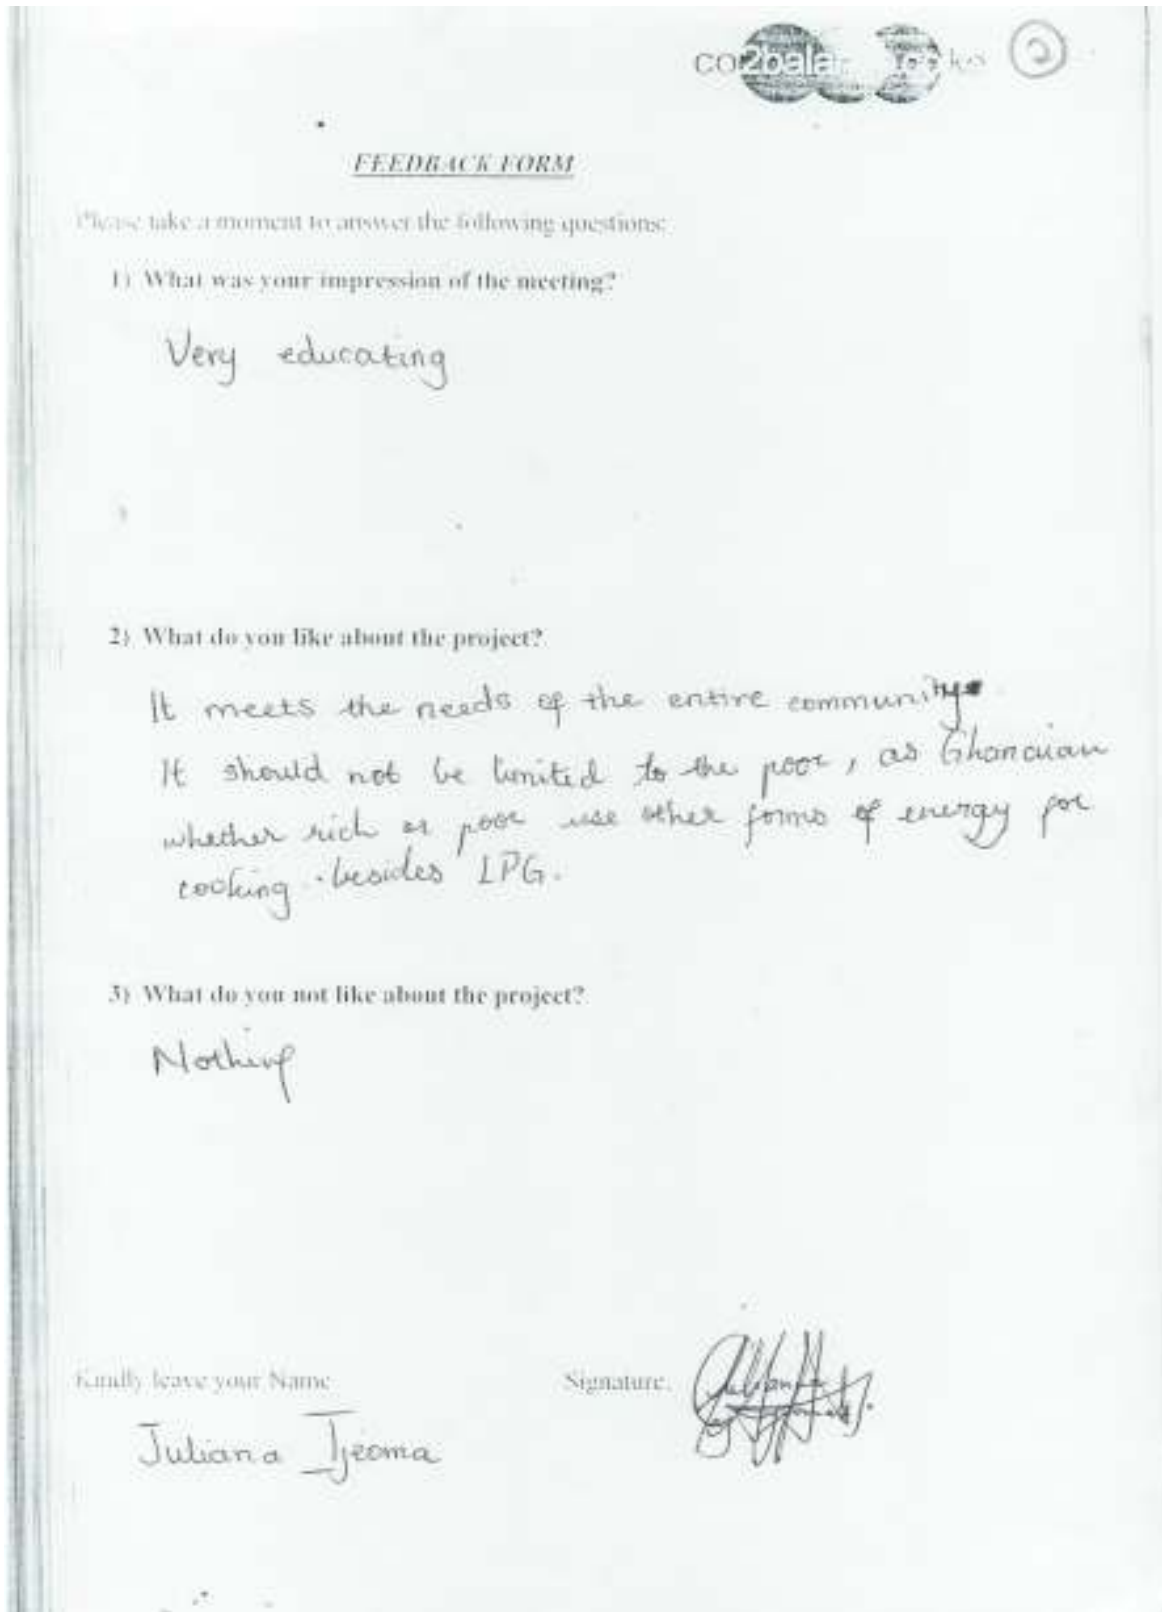 co2bala
2
FEEDBACK FORM
Please take a moment to answer the following questions:
1) What was your impression of the meeting?
Very educating
2) What do you like about the project?
It meets the needs of the entire community
It should not be limited to the poor, as Ghanaian
whether rich or poor use other forms of energy for
cooking besides LPG.
3) What do you not like about the project?
Nothing
Kindly leave your Name
Signature.
Juliana Ijeoma